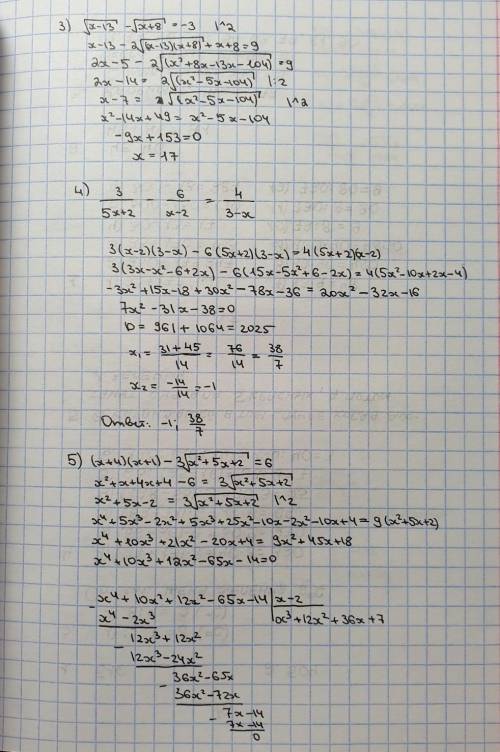 3) √(x-13) - √(x+8) = -3 |^2
x-13 - 2√((x-13)(x+8)) + x+8 = 9
2x-5 - 2√((x²+8x-13x-104)) = 9
2x-14 = 2√((x²-5x-104)) |:2
x-7 = √((x²-5x-104)) |^2
x²-14x+49 = x²-5x-104
-9x+153=0
x=17
4) 3/(5x+2) - 6/(x-2) = 4/(3-x)
3(x-2)(3-x) - 6(5x+2)(3-x) = 4(5x+2)(x-2)
3(3x-x²-6+2x) - 6(15x-5x²+6-2x) = 4(5x²-10x+2x-4)
-3x²+15x-18+30x²-78x-36 = 20x²-32x-16
7x²-31x-38=0
D = 961+1064 = 2025
x₁ = (31+45)/14 = 76/14 = 38/7
x₂ = -14/14 = -1
Ответ: -1; 38/7
5) (x+4)(x+1) - 3√(x²+5x+2) = 6
x²+x+4x+4-6 = 3√(x²+5x+2)
x²+5x-2 = 3√(x²+5x+2) |^2
x⁴+5x³-2x²+5x³+25x²-10x-2x²-10x+4 = 9(x²+5x+2)
x⁴+10x³+21x²-20x+4 = 9x²+45x+18
x⁴+10x³+12x²-65x-14=0
-x⁴+10x²+12x²-65x-14 | x-2
x⁴-2x³ | x³+12x²+36x+7
-12x³+12x²
12x³-24x²
-36x²-65x
36x²-72x
-7x-14
7x-14
0